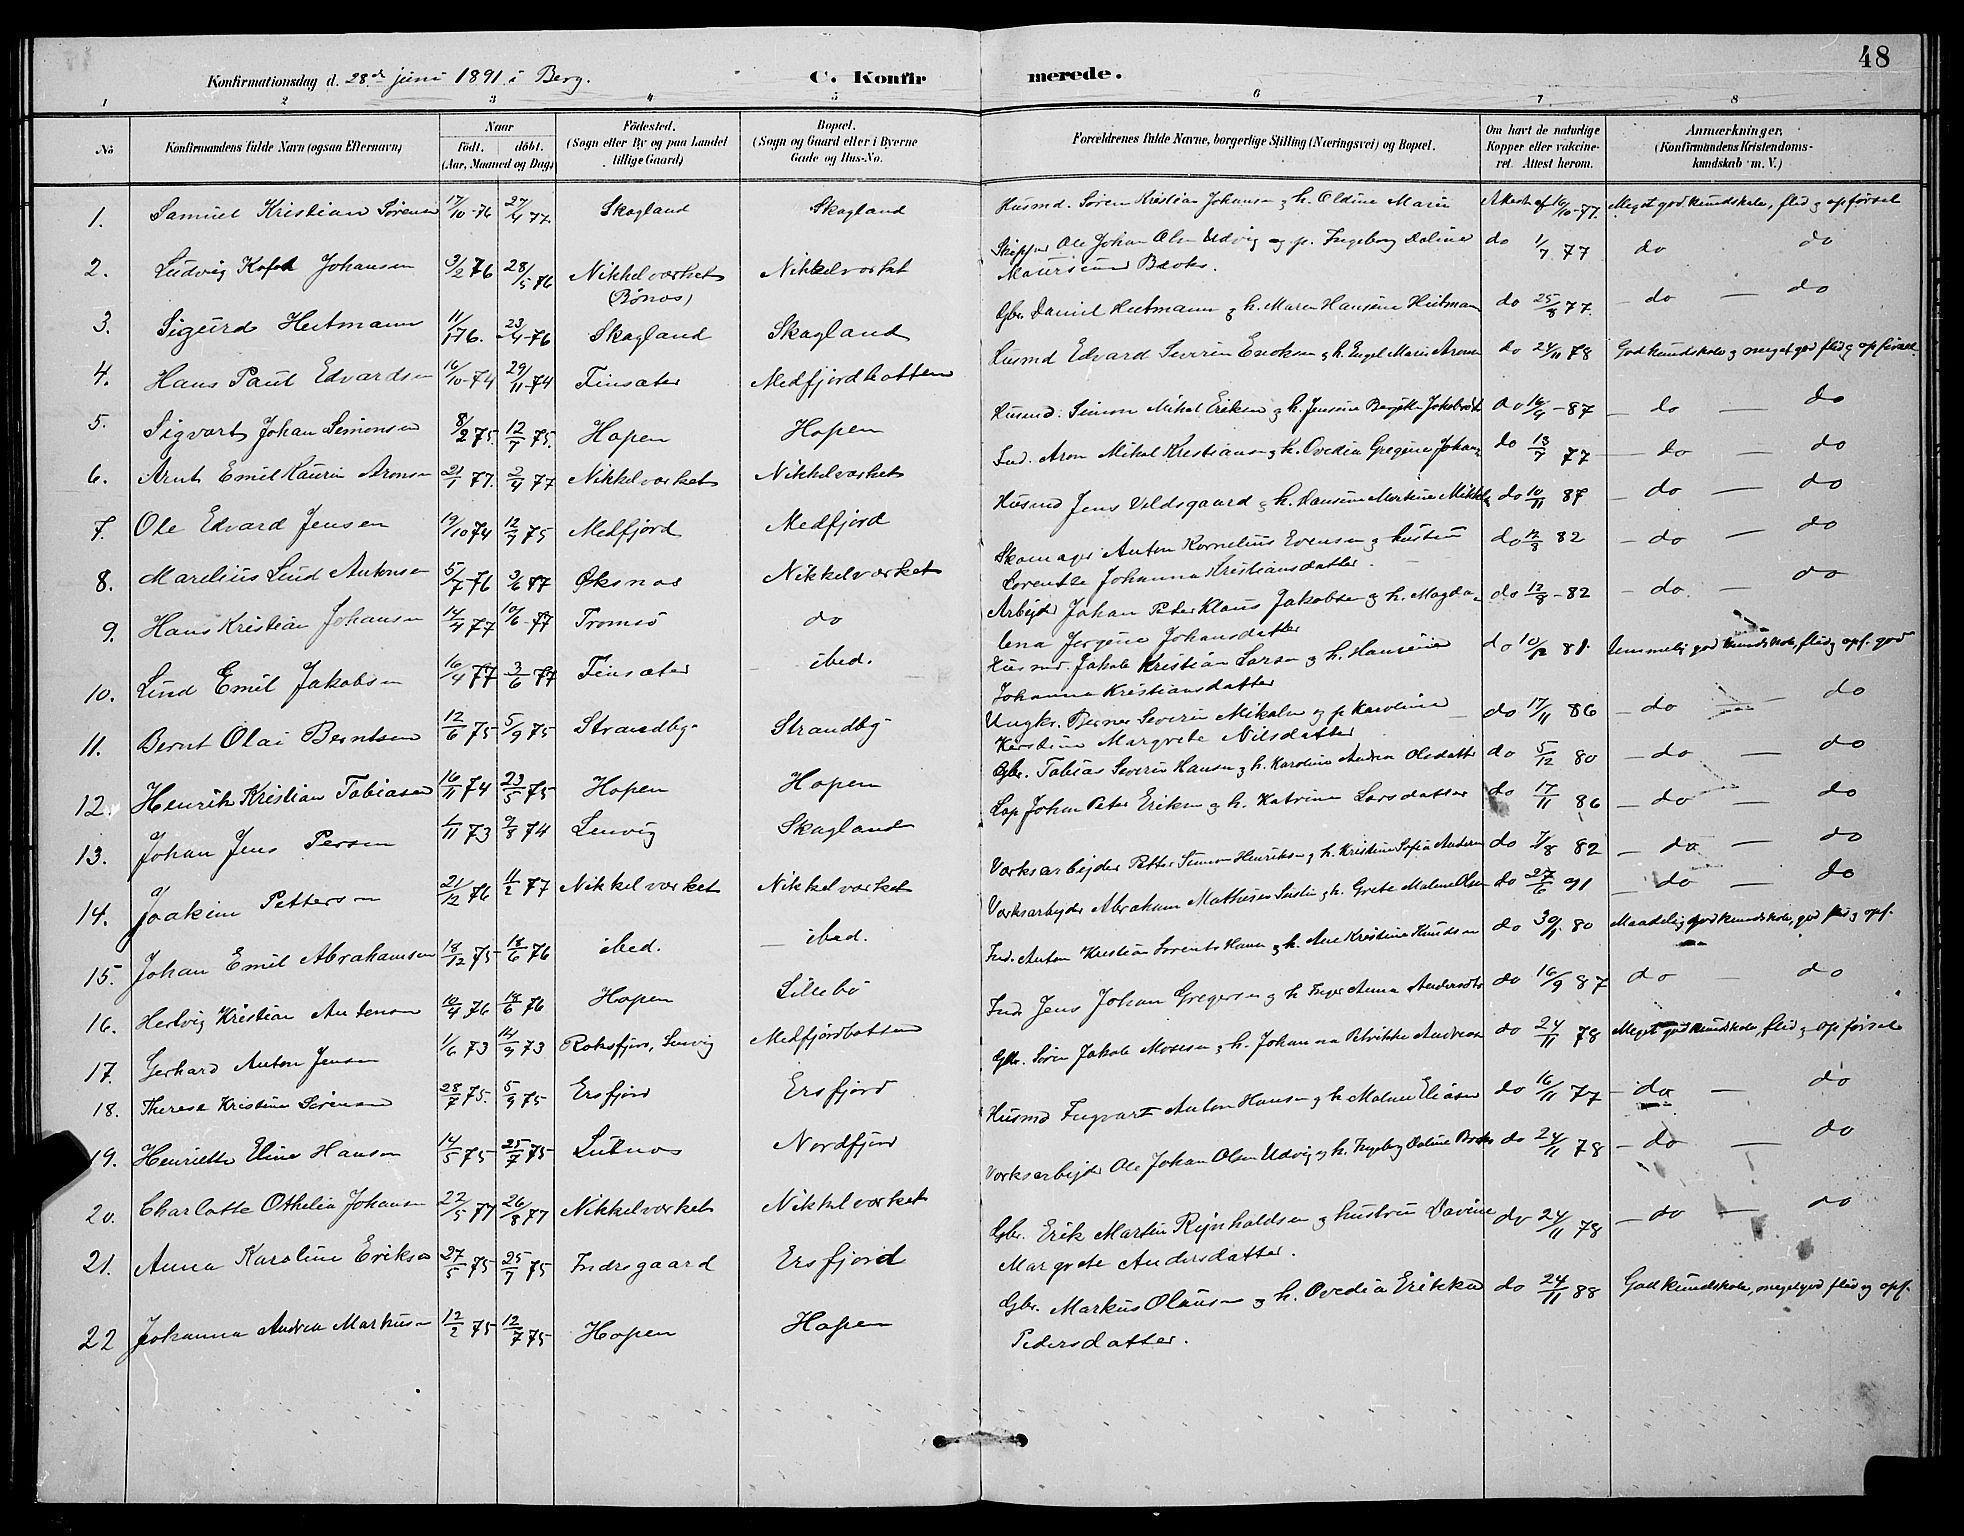 48
Konfirmationsdag d. 28de juni 1891 i Berg. C. Konfirmerede.
1 2 3 4 5 6 7 8
No Konfirmandens fulde Navn (ogsaa Efternavn) Naar födt. döbt. (Aar, Maaned og Dag) Födested. (Sogn eller By og paa Landet tillige Gaard) Bopæl. (Sogn og Gaard eller i Byerne Gade og Hus-No. Forældrenes fulde Navne, borgerlige Stilling (Næringsvei) og Bopæl. Om havt de naturlige Kopper eller vakcineret. Attest herom. Anmærkninger, (Konfirmandens Kristendomskundskab m. V.)
1. Samuel Kristian Sörensen 17/10-76 27/4 77. Skagland Skagland Husmd. Sören Kristian Johansen & h. Oldine Marie Attest af 16/10-77. Meget god kundskab, flid og opförsel
2. Ludvig Johansen 3/2 76 28/5 76 Nikkelværket (Bönæs) Nikkelværket Skipper Ole Johan Olsen Udvig og p. Ingeborg Daline Broks. do 1/7 77 do do
3. Sigurd Heitmann 11/1 76. 23/4-76 Skagland Skagland Gbr. Daniel Heitmann & h. Maren Hansine Heitmann do 25/8 77. do do
4. Hans Paul Edvardsen 16/10-74 29/11-74 Finsæter Medfjordbotten Husmd Edvard Severin Enoksen & h. Engel Marie Aronsen do 24/11 78 God kundskab og meget god flid og opförsel.
5. Sigvart Johan Simonsen 8/2 75. 12/7 75. Hopen Hopen Husmd. Simon Mikal Eriksen & h. Jensine Bergitte Jakobsdt do 16/9-87 do do
6. Arnt Emil Laurin Aronsen 21/1 77. 2/4 77 Nikkelværket Nikkelværket Ind. Aron Mikal Kristiansen & h. Ovedia Gregine Johans do 13/7 77 do do
7. Ole Edvard Jensen 19/10 74 12/9 75 Medfjord Medfjord Husmd Jens Veldsgaard & h. Hansine Martine Mikkels do 10/11 87 do do
8. Marelius Lind Antonsen 5/7-76 3/6 77 Öksnæs Nikkelværket Skomager Anton Kornelius Evensen & hustru Lorentse Johanna Kristiansdatter. do 12/8 82 do do
9. Hans Kristian Johansen 14/4 77 10/6-77 Tromsö do Arbejder Johan Peter Klaus Jakobsen & h. Magdalena Jergine Johansdatter do 12/8-82 do do
10. Lind Emil Jakobsen 16/4 77 3/6 77 Finsæter ibed. Husmd. Jakob Kristian Larsen & h. Hansine Johanna Kristiansdatter do 10/12 81. Temmelig god kundskab, flid og opf. god
11. Bernt Olai Berntsen 12/6 75 5/9 75 Strandby Strandby Ungkr. Berner Severin Mikalsen og p. Karoline Kerstine Margrete Nilsdatter do 17/11 86 do do
12. Henrik Kristian Tobiasen 16/11 74 23/5 75 Hopen Hopen Gbr. Tobias Severin Hansen & h. Karoline Andrea Olsdatter do 5/12 80 do do
13. Johan Jens Persen 1/11 73 9/8 74 Lenvig Skagland Lap Johan Peter Eriksen & h. Katrine Larsdatter do 17/11 86 do do
14. Joakim Pettersen 21/12 76 11/2 77 Nikkelværket Nikkelværket Værksarbejder Petter Simon Henriksen & h. Kristine Sofia Andersen do 7/8 82 do do
15. Johan Emil Abrahamsen 18/12 75 18/6 76 ibed. ibed. Værksarbejder Abraham Mathesius & h. Grete Malene Olsen do 27/6 91 do do
16. Hertvig Kristian Antonsen 10/4 76 18/6 76 Hopen Lillebö Ind. Anton Kristian Lorents Hansen & h. Ane Kristine Knudsen do 30/11 80 Maadelig god kundskab, god flid og opf.
17. Gerhard Anton Jensen 1/6 73 14/9 73 Roksfjor, Lenvig Medfjordbotten Ind Jens Johan Gregersen & h Inger Anna Andersdt do 16/9 87 do do
18. Therese Kristine Sörensen 28/7 75. 5/9 75 Ersfjord Ersfjord Gbr. Sören Jakob Mosesen & h. Johanna Petrikke Andreasen do 24/11 78 Meget god kundskab, flid og opförsel
19. Henriette Eline Hansen 14/5 75 25/7 75 Lutnæs Nordfjord Husmd Ingvart Anton Hansen & h Malene Eliasen do 16/11 77 do do
20. Charlotte Othelia Johansen 22/5 77 26/8 77 Nikkelværket Nikkelværket Værksarbejder Ole Johan Olsen Udvig & h. Ingeborg Daline Broks do 24/11 78 do do
21. Anna Karoline Eriksen 27/5 75 25/7 75 Indregaard Ersfjord Gbr. Erik Martin Reinholdsen & hustru Davine Margrete Andersdatter. do 24/11 78 do do
22 Johanna Andrea Markusen 12/2 75 12/7 75 Hopen Hopen Gbr. Markus Olausen & h. Ovedia Erikka Pedersdatter. do 24/11 88 God kundskab, meget god flid og opf.